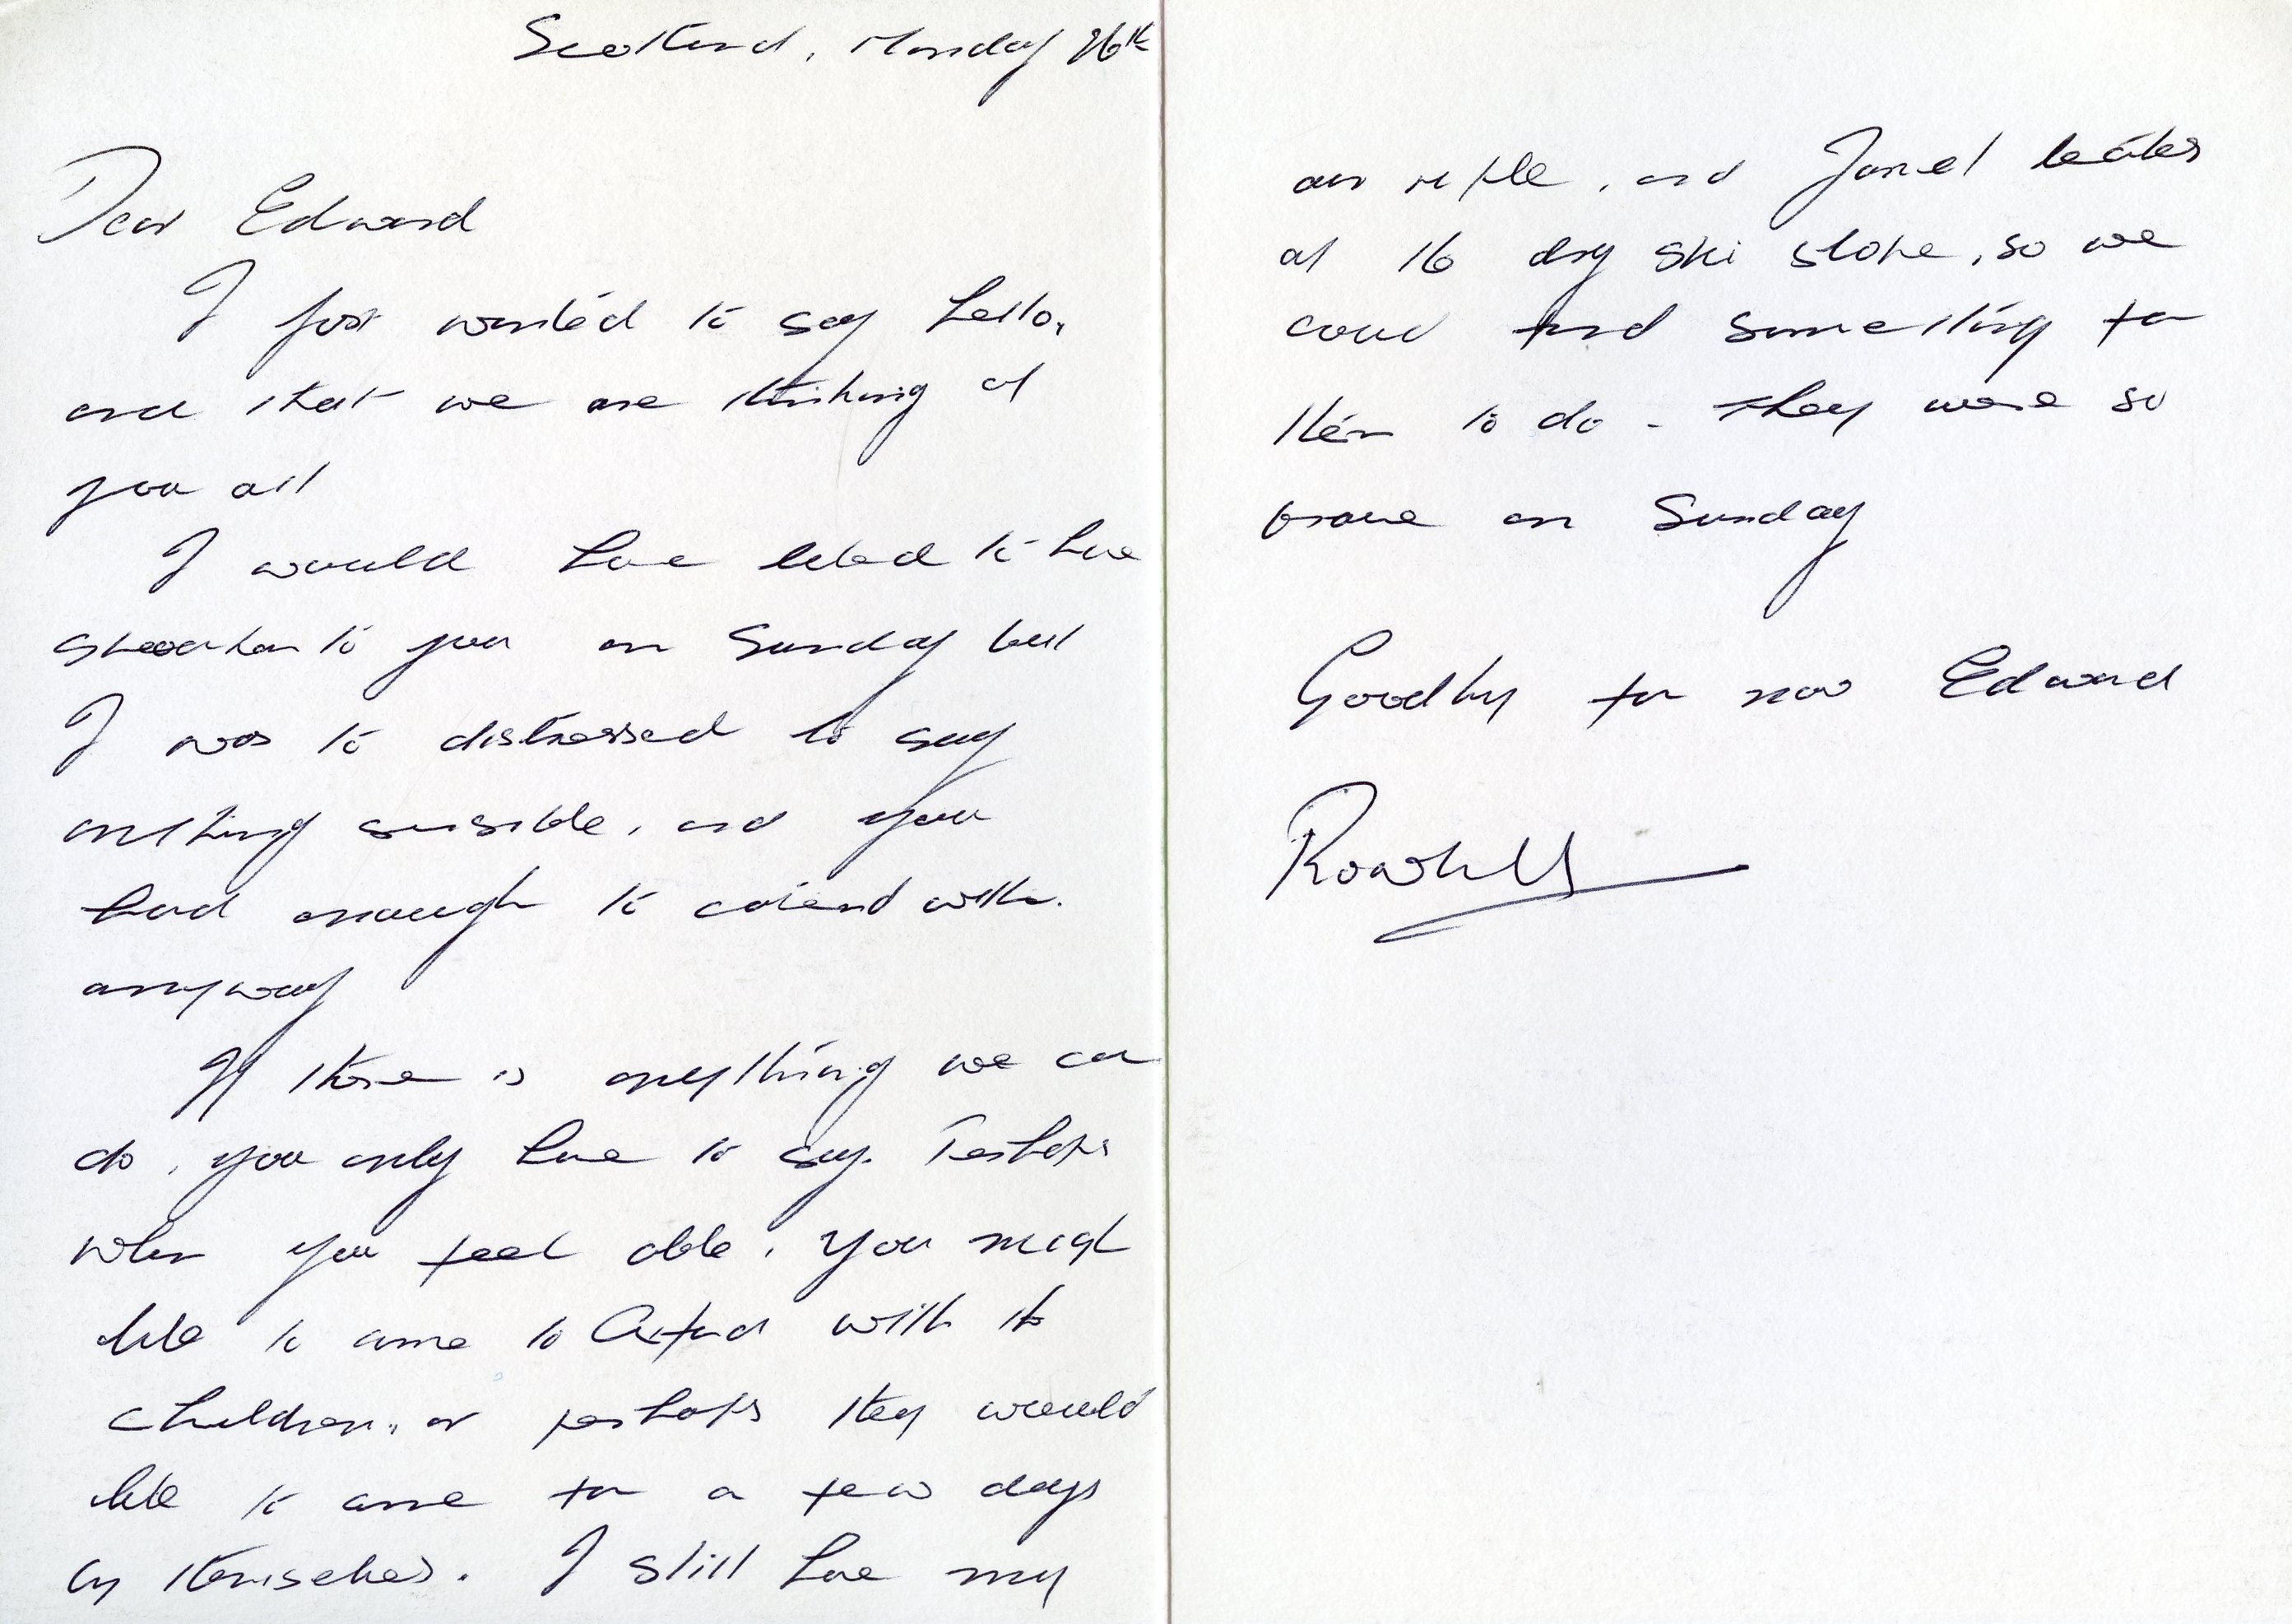 Scotland, Monday 26th
Dear Edward
I just wanted to say hello,
and that we are thinking of
you all
I would have liked to have
spoken to you on Sunday but
I was to distressed to say
anything sensible, and you
had enough to contend with.
anyway
If there is anything we can
do, you only have to say. Perhaps
when you feel able, you might
like to come to Oxford with the
children, or perhaps they would
like to come for a few days
by themselves. I still have my
air rifle, and Janet teaches
at the dry ski slope, so we
could find something for
them to do - They were so
brave on Sunday
Goodby for now Edward